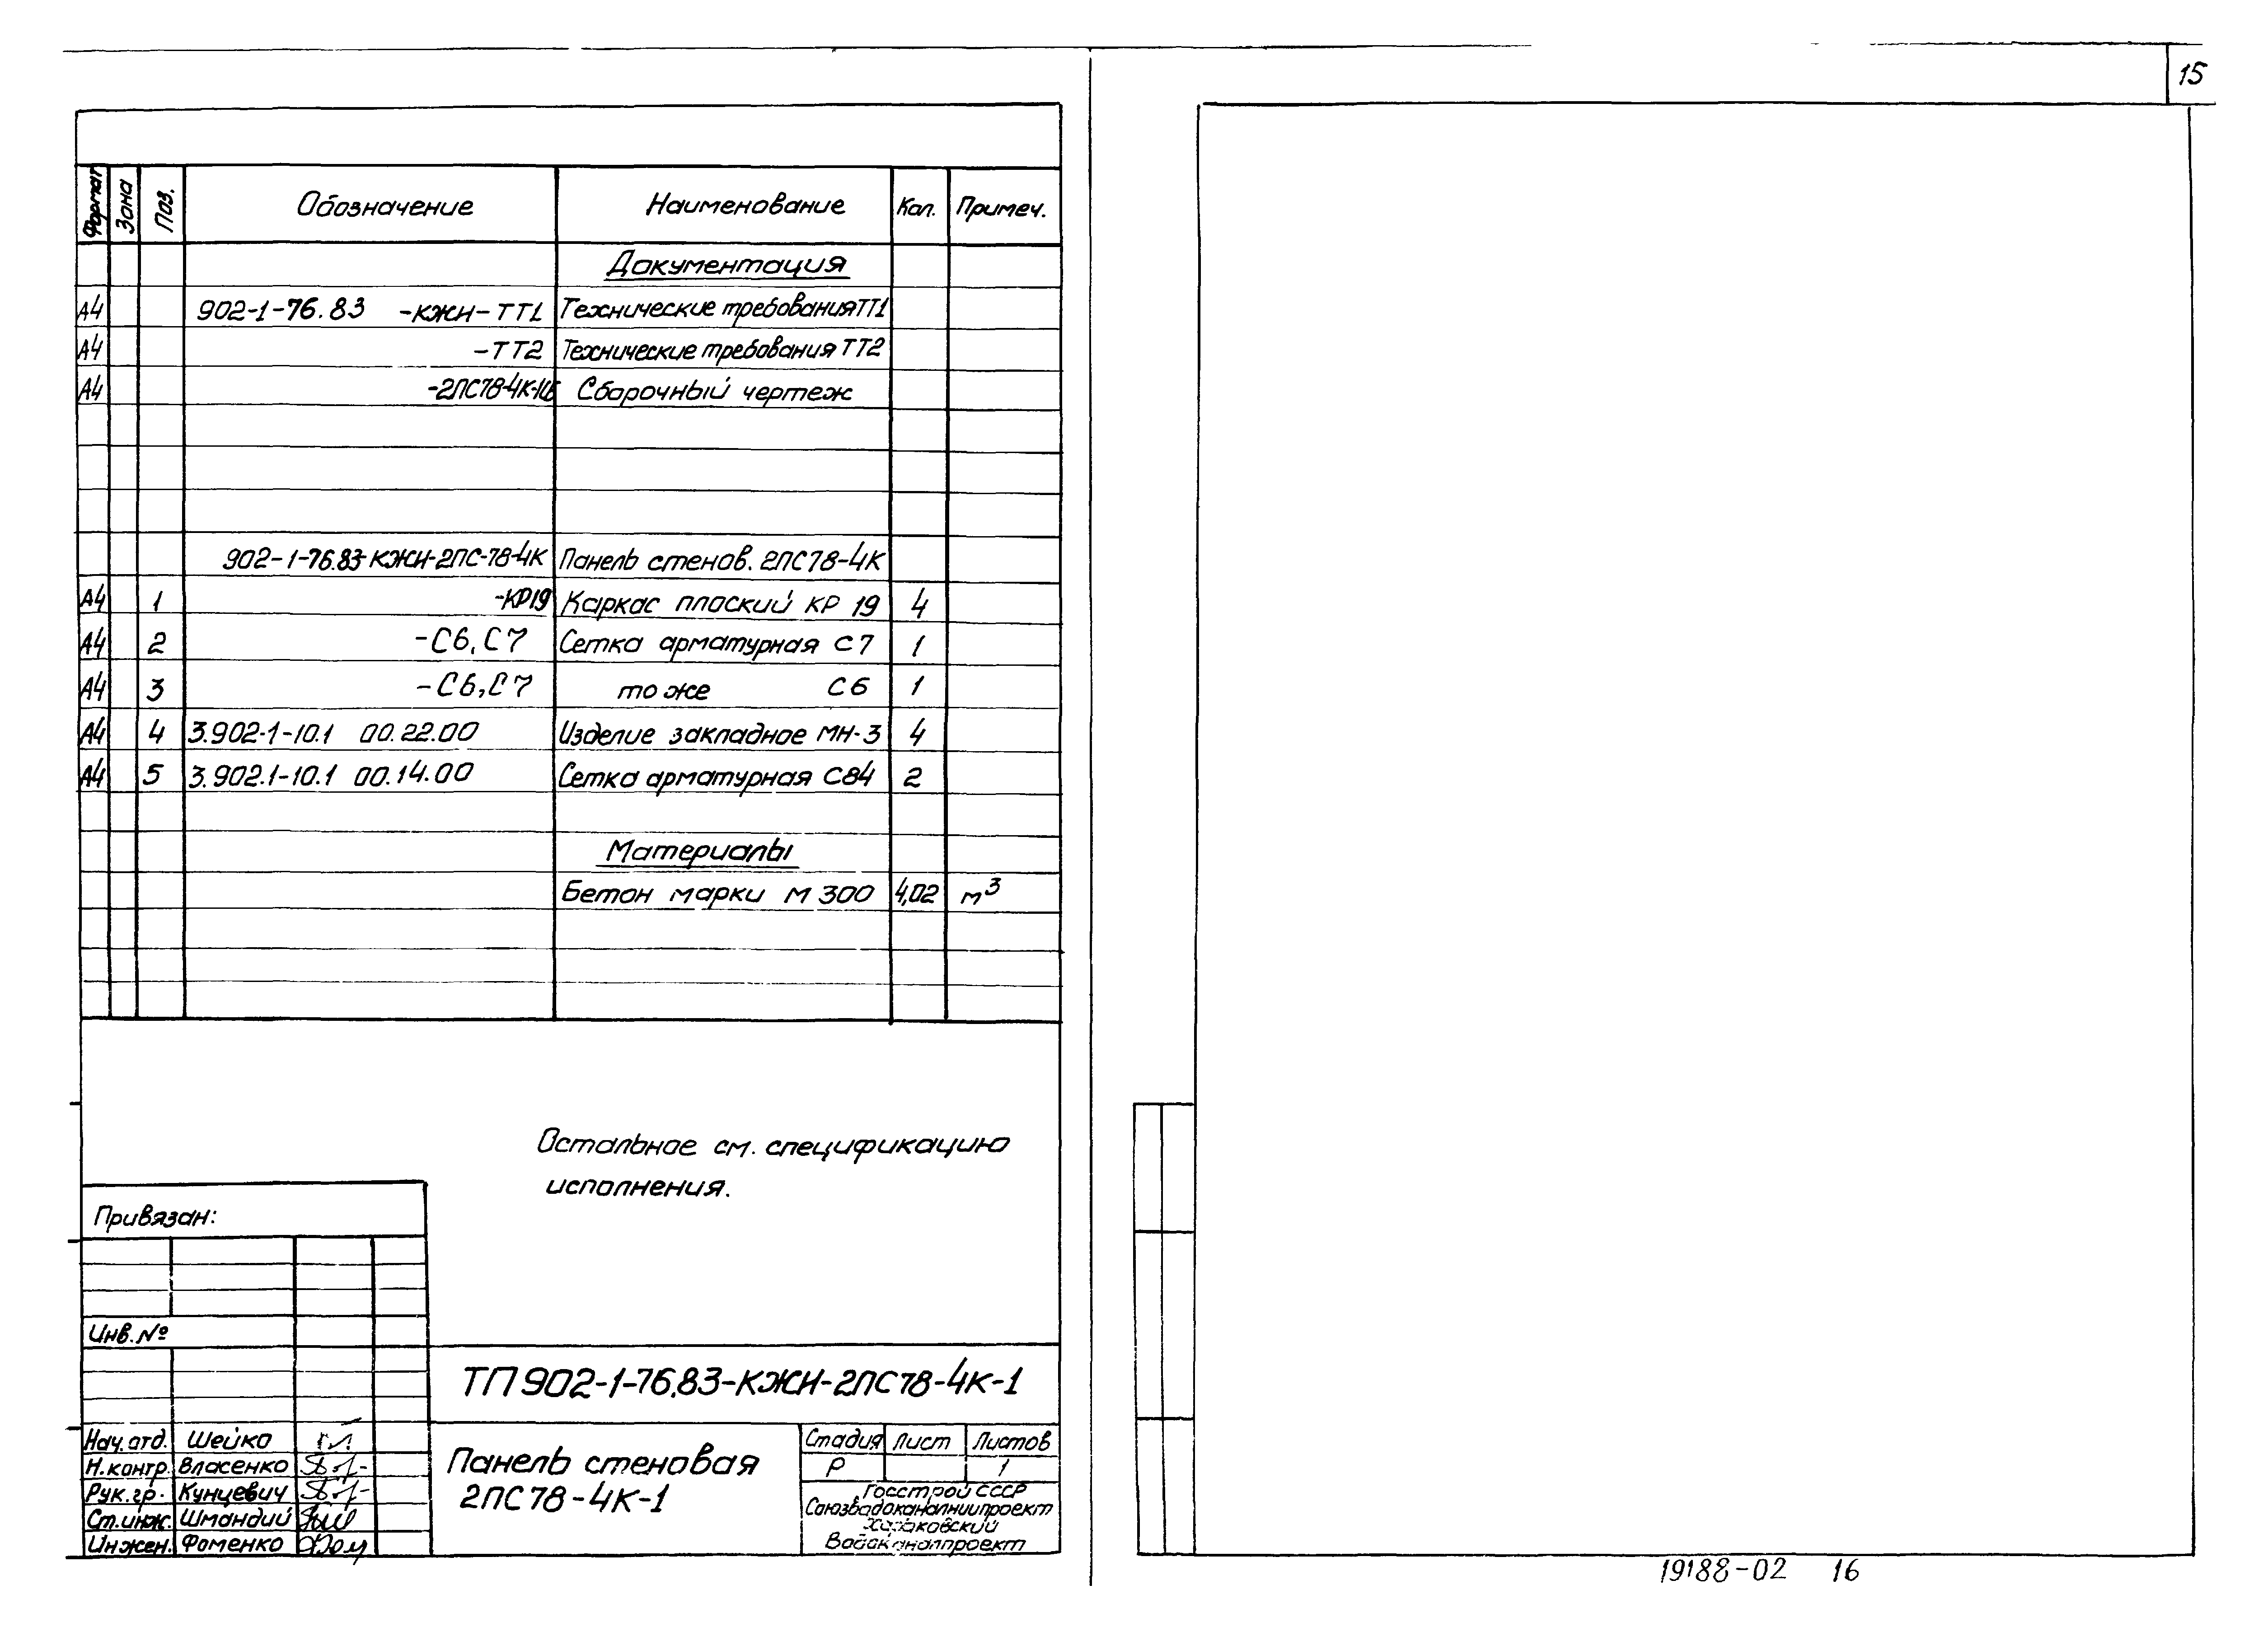 15
Формат Зона Поз. Обозначение Наименование Кол. Примеч.
Документация
А4 902-1-76.83 -КЖИ-ТТ1 Технические требования ТТ1
А4 -ТТ2 Технические требования ТТ2
А4 -2ПС78-4К-1СБ Сборочный чертеж
902-1-76.83-КЖИ-2ПС-78-4К Панель стенов. 2ПС78-4К
А4 1 -КР19 Каркас плоский КР 19 4
А4 2 -С6,С7 Сетка арматурная С7 1
А4 3 -С6,С7 то же С6 1
А4 4 3.902-1-10.1 00.22.00 Изделие закладное МН-3 4
А4 5 3.902.1-10.1 00.14.00 Сетка арматурная С84 2
Материалы
Бетон марки М 300 4,02 м³
Остальное см. спецификацию
исполнения.
Привязан:
Инв.№
ТП 902-1-76.83-КЖИ-2ПС78-4К-1
Нач.отд. Шейко
Н.контр. Власенко
Рук.гр. Кунцевич
Ст.инж. Шмандий
Инжен. Фоменко
Панель стеновая
2ПС78-4К-1
Стадия Лист Листов
Р 1
Госстрой СССР
Союзводоканалниипроект
Харьковский
Водоканалпроект
19188-02 16